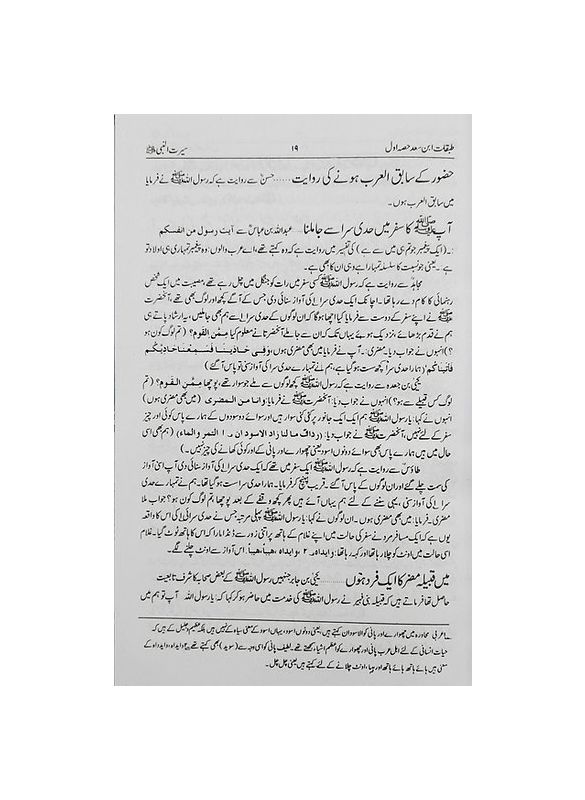 طبقات ابن سعد حصہ اول ۱۹ سیرت النبی ﷺ
حضور کے سابق العرب ہونے کی روایت ...... حسنؓ سے روایت ہے کہ رسول اللہ ﷺ نے فرمایا
میں سابق العرب ہوں۔
آپ ﷺ کا سفر میں حدی سرا سے جا ملنا ...... عبداللہ بن عباسؓ سے آیت رسول من انفسکم
:۔ (ایک پیغمبر جو تم ہی میں سے ہے) کی تفسیر میں روایت ہے کہ وہ کہتے تھے، اے عرب والوں: وہ پیغمبر تمہاری ہی اولاد تو
ہے۔ یعنی جو نسب کا سلسلہ تمہارا ہے وہی ان کا بھی ہے۔
مجاہدؒ سے روایت ہے کہ رسول اللہ ﷺ کسی سفر میں رات کو جنگل میں چل رہے تھے، مصیبت میں ایک شخص
رہنمائی کا کام دے رہا تھا۔ اچانک ایک حدی سراۓ کی آواز سنائی دی جس کے آگے کچھ اور لوگ بھی تھے، آنحضرت
ﷺ نے اپنے سفر کے دوست سے فرمایا کیا اچھا ہوگا کہ ان لوگوں کے حدی سراۓ سے ہم بھی جا ملیں، یہ ارشاد پاتے ہی
ہم نے قدم بڑھائے، نزدیک ہوئے یہاں تک کہ ان سے جا ملے آنحضرت نے معلوم کیا ممن القوم؟ (تم لوگ کون ہو
؟) انہوں نے جواب دیا۔ مضری:۔ آپ نے فرمایا میں بھی مضری ہوں، وفی حادینا فسمعنا حادیکم
فاتیناکم (ہمارا حدی سرا سست ہو گیا ہے، ہم نے تمہارے حدی سرا کی آواز سنی تو پاس آ گئے)
یحیٰی بن جعدہ سے روایت ہے کہ رسول اللہ ﷺ کچھ لوگوں سے ملے جو سوار تھے، پوچھا ممن القوم؟ (تم
لوگ کس قبیلے سے ہو؟) انہوں نے جواب دیا:۔ آنحضرت ﷺ نے فرمایا وانا من المضری (میں بھی مضری ہوں)
انہوں نے کہا: یا رسول اللہ ﷺ ہم ایک ایک جانور پر کئی کئی سوار ہیں اور سوائے دوسودوں کے ہمارے پاس کوئی اور چیز
سفر کے لئے نہیں، آنحضرت ﷺ نے جواب دیا: (ذاک مالنا زاد الا الاسودان۔۱ التمر والماء) (ہم بھی اسی
حال میں ہیں ہمارے پاس بھی سوائے دونوں اسود یعنی چھوارے اور پانی کے اور کوئی کھانے کی چیز نہیں۔)
طاؤسؒ سے روایت ہے کہ رسول اللہ ﷺ ایک سفر میں تھے کہ ایک حدی سراۓ کی آواز سنائی دی آپ اسی آواز
کی سمت چلے گئے اور ان لوگوں کے پاس آ گئے۔ قریب پہنچ کر فرمایا۔ ہمارا حدی سرا است ہو گیا تھا۔ ہم نے تمہارے حدی
سراۓ کی آواز سنی، یہی سننے کے لئے ہم یہاں آئے ہیں پھر کچھ وقفے کے بعد پوچھا تم لوگ کون ہو؟ جواب ملا
مضری۔ فرمایا: میں بھی مضری ہوں۔ ان لوگوں نے کہا: یا رسول اللہ ﷺ پہلی مرتبہ جس نے حدی سرائی کی اس کا واقعہ
یوں ہے کہ ایک مسافر مرد نے سفر کی حالت میں اپنے غلام کے ہاتھ پر اتنی زور سے ڈنڈا مارا کہ اس کا ہاتھ ٹوٹ گیا۔ غلام
اسی حالت میں اونٹ کو چلا رہا تھا اور کہہ رہا تھا: وایداہ۔۲ وایداہ، ھیباً ھیباً۔ اس آواز سے اونٹ چلنے لگے۔
میں قبیلہ مضر کا ایک فرد ہوں ...... یحیٰی بن جابر جنہیں رسول اللہ ﷺ کے بعض صحابہ کا شرف تابعیت
حاصل تھا فرماتے ہیں کہ قبیلہ بنی فہیر نے رسول اللہ ﷺ کی خدمت میں حاضر ہو کر کہا کہ: یا رسول اللہ آپ تو ہم میں
۱۔ عربی محاورہ میں چھوارے اور پانی کو الاسودان کہتے ہیں، یعنی دونوں اسود، یہاں اسود کے معنی سیاہ کے نہیں ہیں بلکہ عظیم و جلیل کے ہیں کہ
حیات انسانی کے لئے اہل عرب پانی اور چھوارے کو اعظم اشیاء سمجھتے تھے۔ لطیف پانی کو اسی وجہ سے (سوید) بھی کہتے تھے۔ ۲ وایداہ، وایداہ کے
معنی ہیں ہائے ہاتھ ہائے ہاتھ اور ہیبا، اونٹ چلانے کے لئے کہتے ہیں یعنی چل چل۔